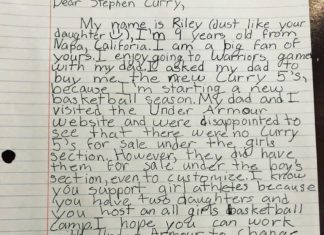 Dear Stephen Curry,
My name is Riley (just like your
daughter :), I'm 9 years old from
Napa, California. I am a big fan of
yours. I enjoy going to Warriors games
with my dad. I asked my dad to
buy me the new Curry 5's,
because I'm starting a new
basketball season. My dad and I
visited the Under Armour
website and were disappointed to
see that there were no Curry
5's for sale under the girls
section. However, they did have
them for sale under the boy's
section, even to customize. I know
you support girl athletes because
you have two daughters and
you host an all girls basketball
camp. I hope you can work
Armour to change